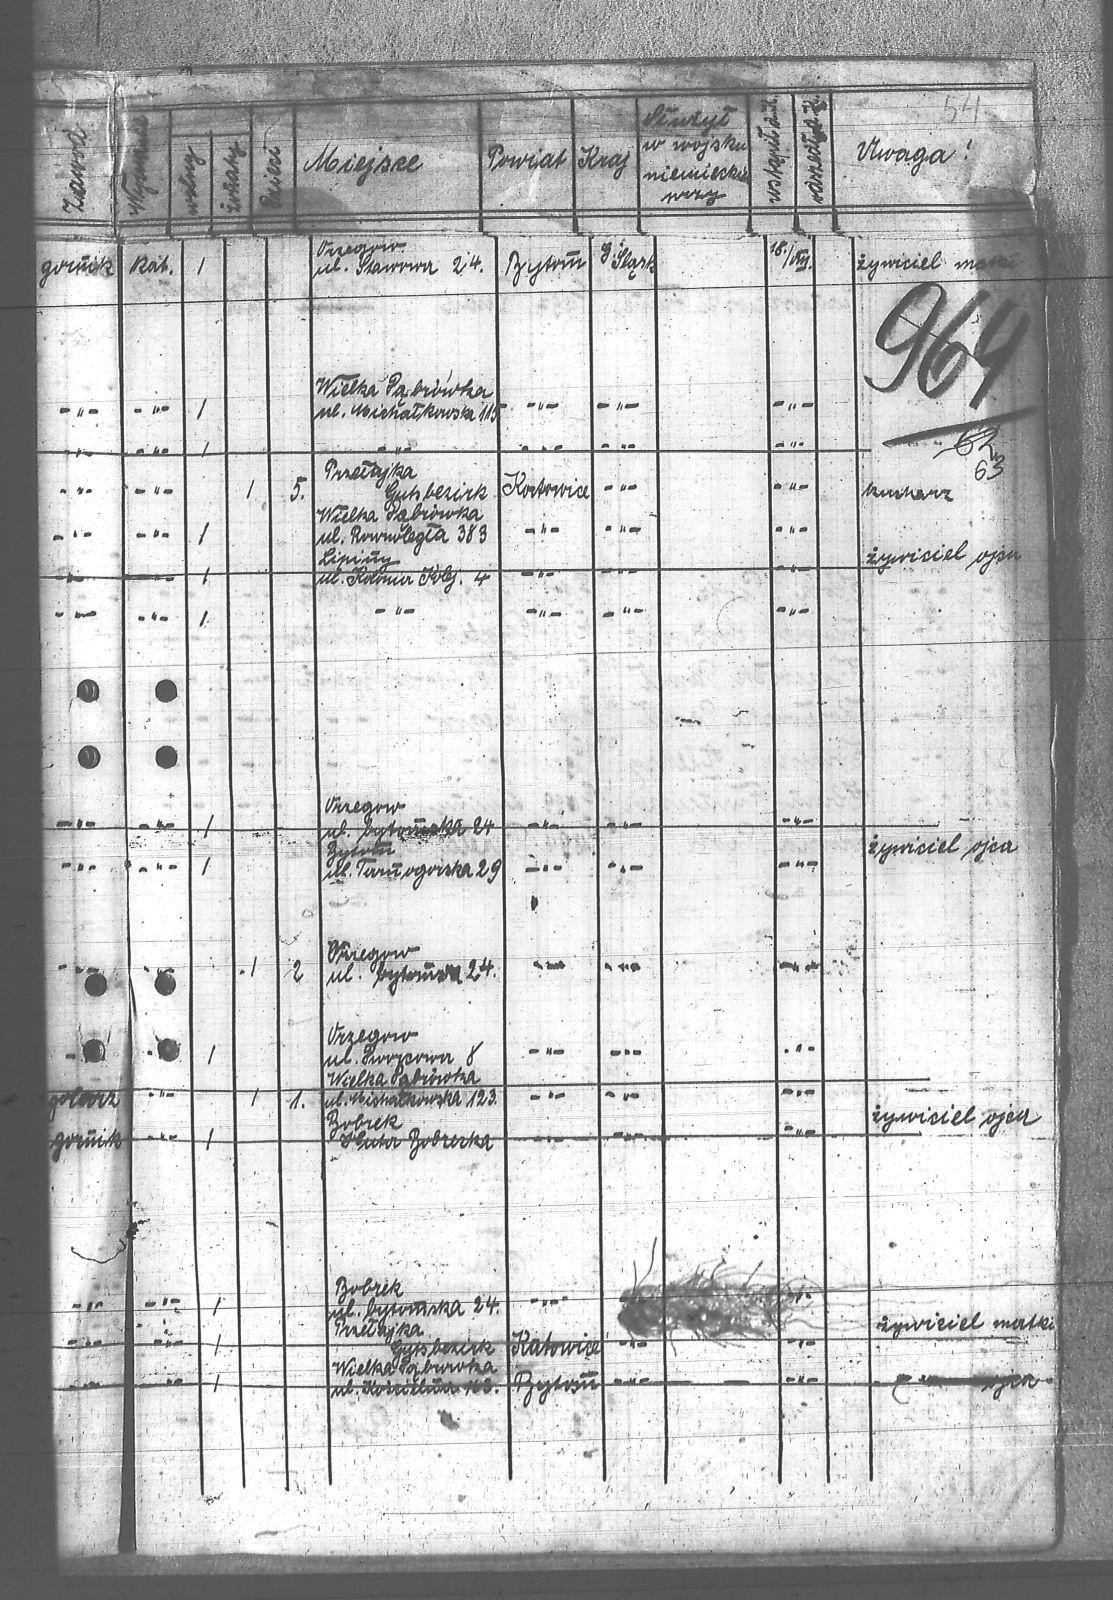 54
Zawód Wyznanie wolny żonaty Dzieci Miejsce Powiat Kraj Służył w wojsku niemieckim przy wstąpił d. K. odszedł z K. Uwaga!
górnik kat. 1 Orzegow ul. Stawowa 24. Bytom G Śląsk 18/VIII. żywiciel matki
964
Wielka Dąbrówka
-"- -"- 1 ul. Michałkowska 115 -"- -"- -"-
-"- -"- 1 -"- -"- -"- -"-
62
63
Przełajka
-"- -"- 1 5. Gutsbezirk Katowice -"- -"- kucharz
Wielka Dąbrówka
-"- -"- 1 ul. Rownoległa 383 -"- -"- -"-
Lipiny żywiciel ojca
-"- -"- 1 ul. Kolonia Kolej. 4 -"- -"- -"-
-"- -"- 1 -"- -"- -"- -"-
Orzegow
-"- -"- 1 ul. bytomska 24 -"- -"- -"-
Bytom żywiciel ojca
-"- -"- 1 ul. Tarnogorska 29 -"- -"- -"-
Orzegow
-"- -"- 1 2 ul. bytomska 24. -"- -"- -"-
Orzegow
-"- -"- 1 ul. Dworcowa 8 -"- -"- -"-
Wielka Dąbrówka
golarz -"- 1 1. ul. Michałkowska 123. -"- -"- -"-
Bobrek żywiciel ojca
górnik -"- 1 Huta Bobrerka -"- -"- -"-
Bobrek
-"- -"- 1 ul. bytomska 24. -"- -"-
Przełajka żywiciel matki
-"- -"- 1 Gutsbezirk Katowice -"- -"-
Wielka Dąbrówka
-"- -"- 1 ul. Bytom -"- -"- ojca